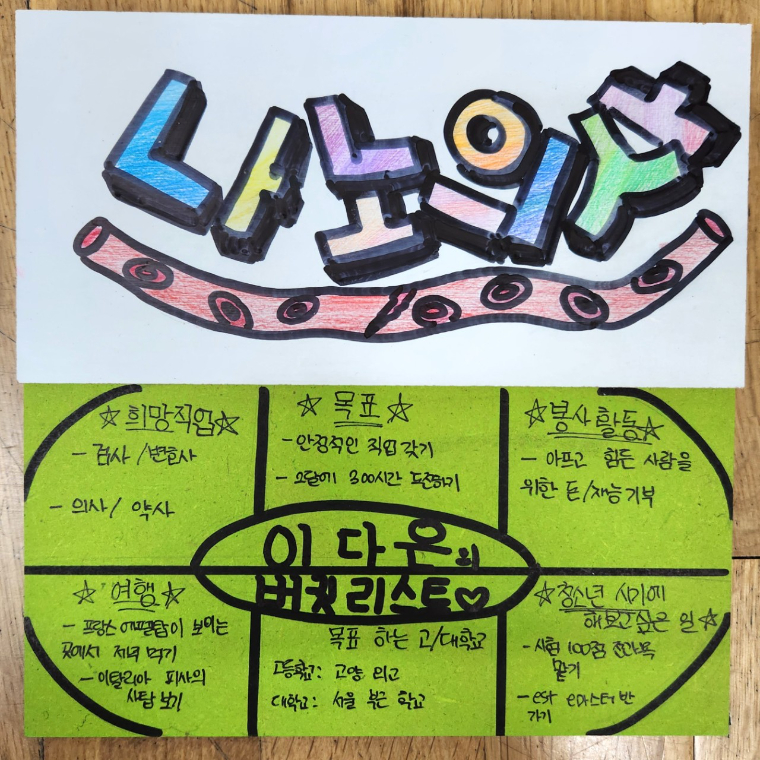 나노의사
☆희망직업☆
- 검사/변호사
- 의사/ 약사
☆ 목표 ☆
- 안정적인 직업 갖기
300시간
☆봉사활동☆
- 아프고 힘든 사람을
위한 돈/재능기부
이다은의
버킷리스트♡
☆여행☆
- 프랑스 에펠탑이 보이는
곳에서 저녁 먹기
- 이탈리아 피사의
사탑 보기
목표 하는 고/대학교
고등학교: 고양 외고
대학교: 서울 붙은 학교
☆청소년 시기에
해보고싶은 일☆
- 시험 100점 전과목
맞기
- est e마스터반
가기